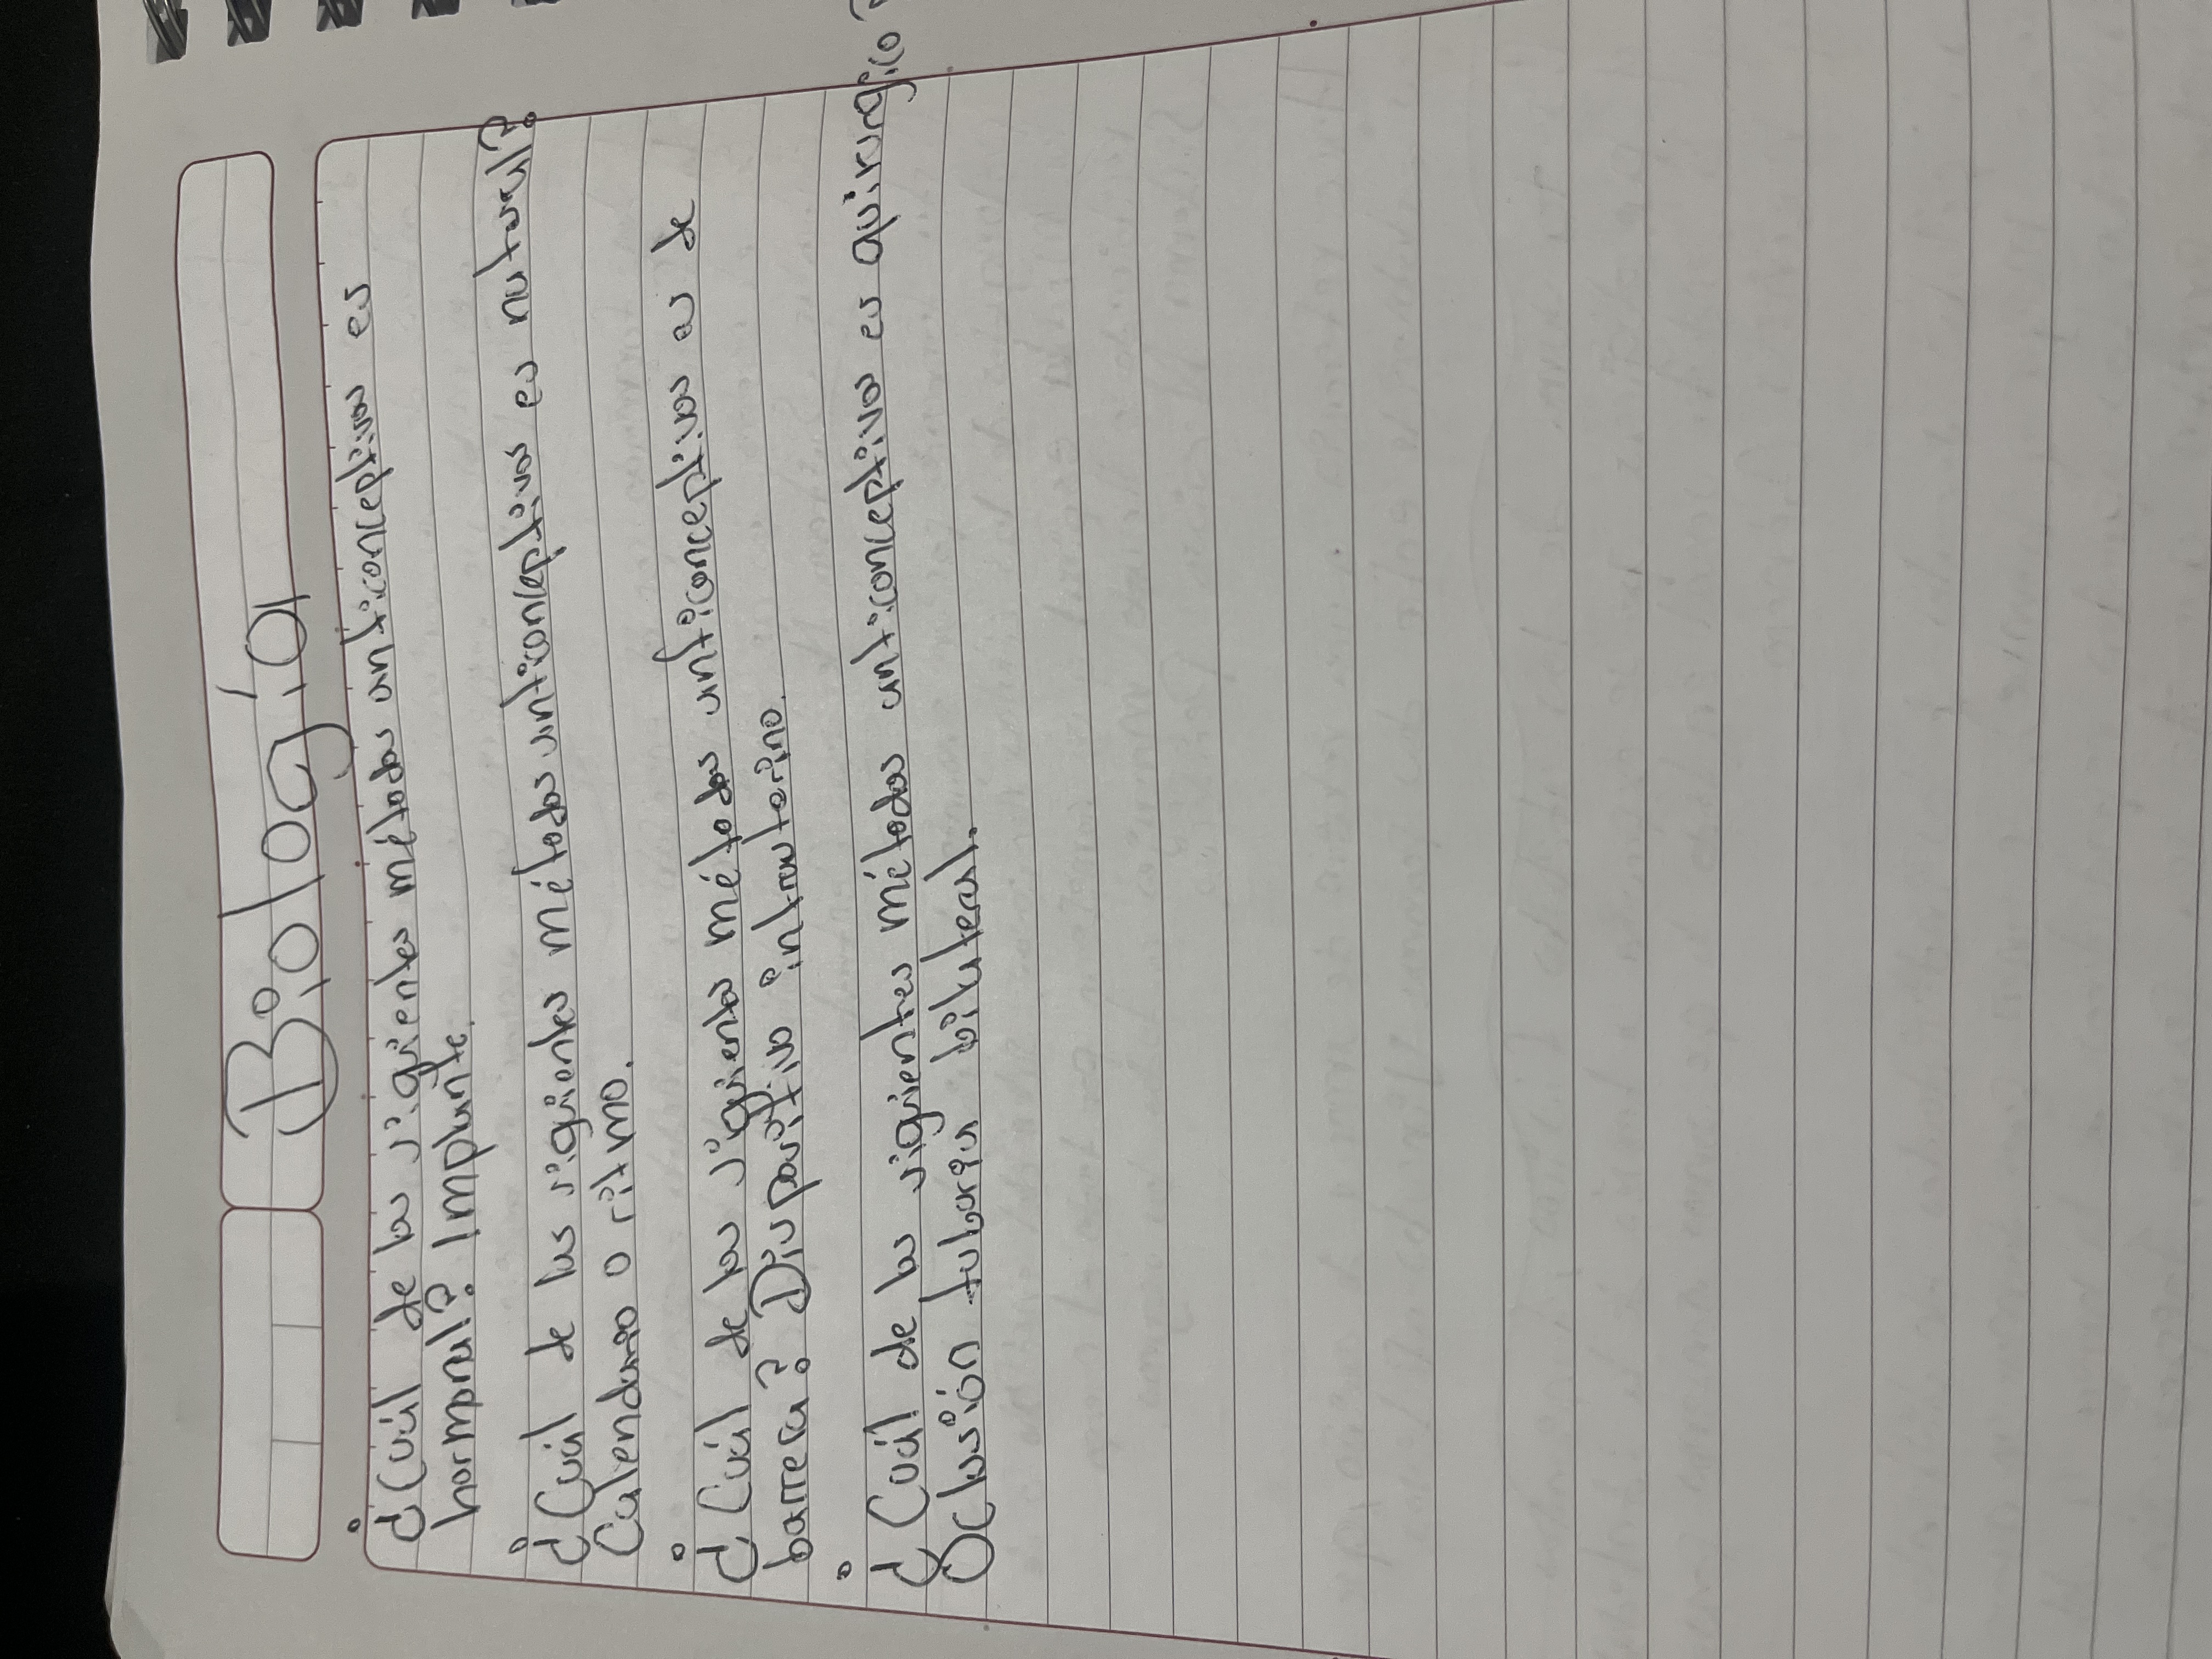 Biología
¿Cuál de los siguientes métodos anticonceptivos es
hormonal? Implante.
¿Cuál de los siguientes métodos anticonceptivos es natural?
Calendario o ritmo.
¿Cuál de los siguientes métodos anticonceptivos es de
barrera? Dispositivo intrauterino.
¿Cuál de los siguientes métodos anticonceptivos es quirurgico?
Oclusión tubarea bilateral.